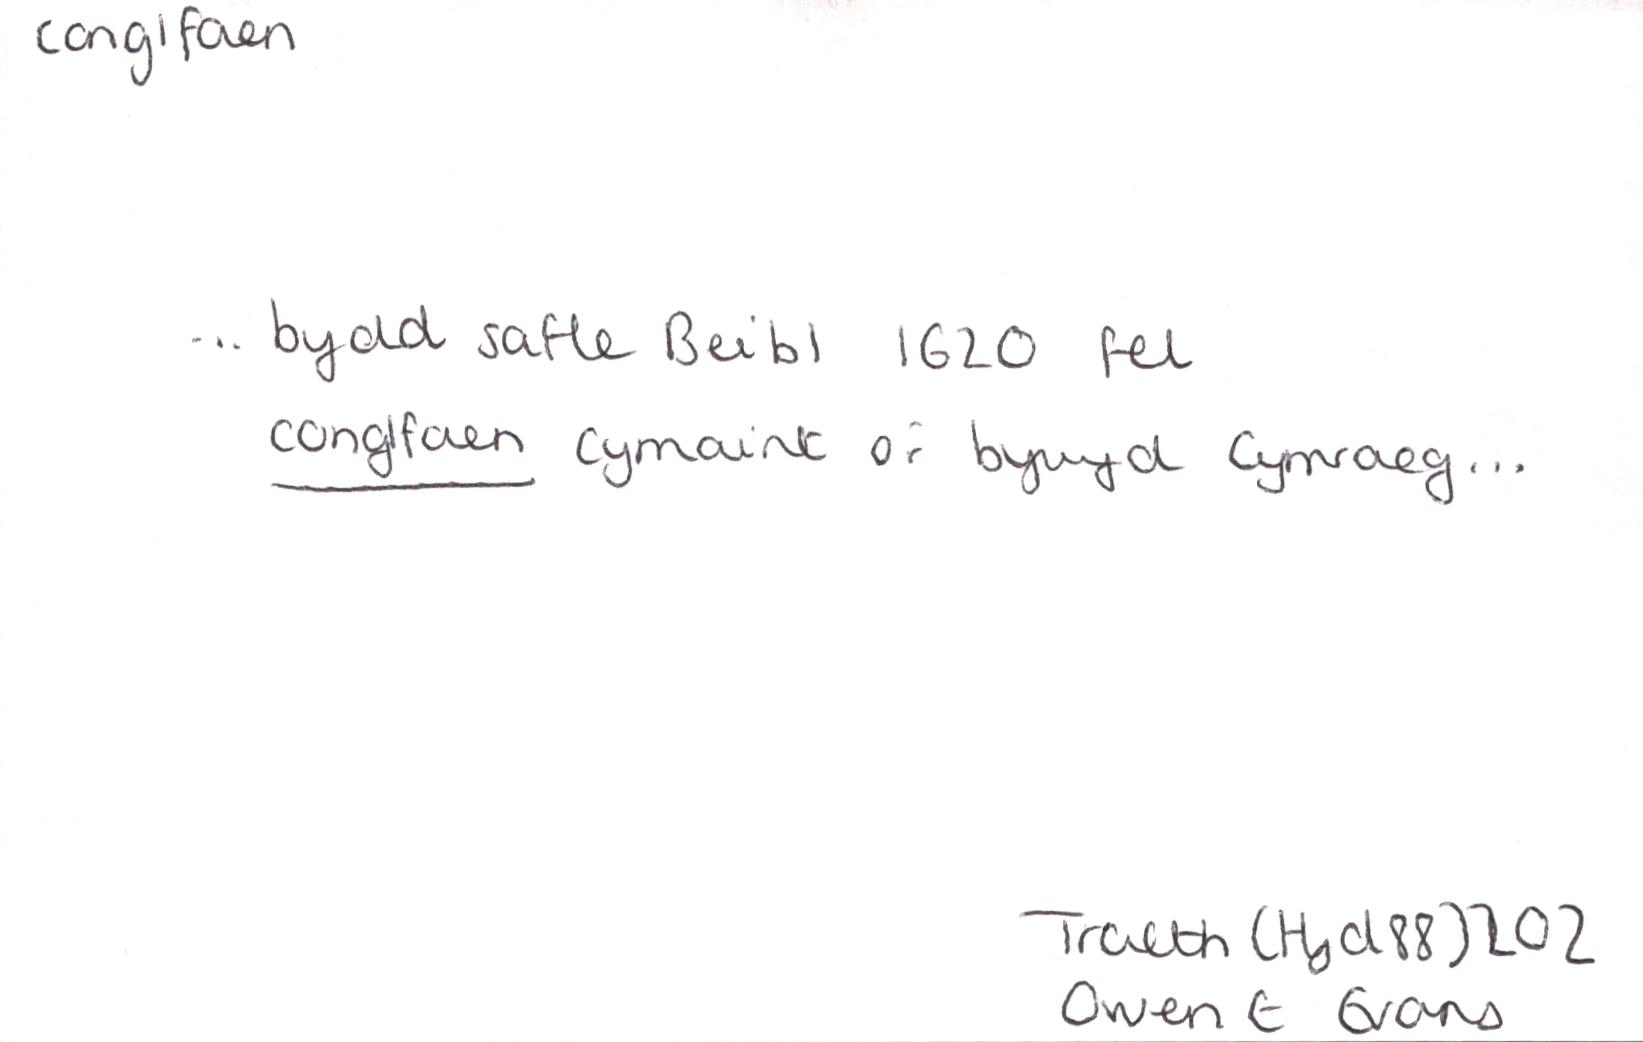 conglfaen
... bydd safle Beibl 1620 fel
conglfaen cymaint o'i bywyd Cymraeg...
Traeth (Hyd 88) 202
Owen E Evans